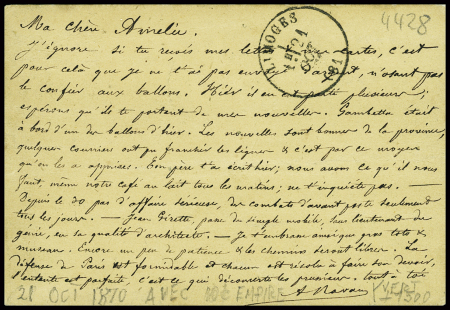 4428
Ma Chère Amélie.
J'ignore si tu reçois mes lettres cartes, c'est
LIMOGES
21
OCT
pour celà que je ne t'ai pas envoyé d'argent, n'osant pas
le confier aux ballons. Hier il en est parti plusieurs;
espérons qu'ils te portent de mes nouvelles. Gambetta était
à bord d'un des ballons d'hier. Les nouvelles sont bonnes de la province,
quelques courriers ont pu franchir les lignes & c'est par ce moyen
qu'on les a apprises. Ton père t'a écrit hier; nous avons ce qu'il nous
faut, même notre café au lait tous les matins; ne t'inquiète pas.
Depuis le 30 pas d'affaire sérieuse, des combats d'avant poste seulement
tous les jours. — Jean Pirette, passe de simple mobile, lieutenant du
génie, en sa qualité d'architecte. — Je t'embrasse ainsi que gros toto &
museau. Encore un peu de patience & les chemins seront libres. La
défense de Paris est formidable et chacun est résolu à faire son devoir,
l'entente est parfaite, c'est ce qui déconcerte les prussiens. tout à toi
21 OCT 1870 AVEC EMPIRE